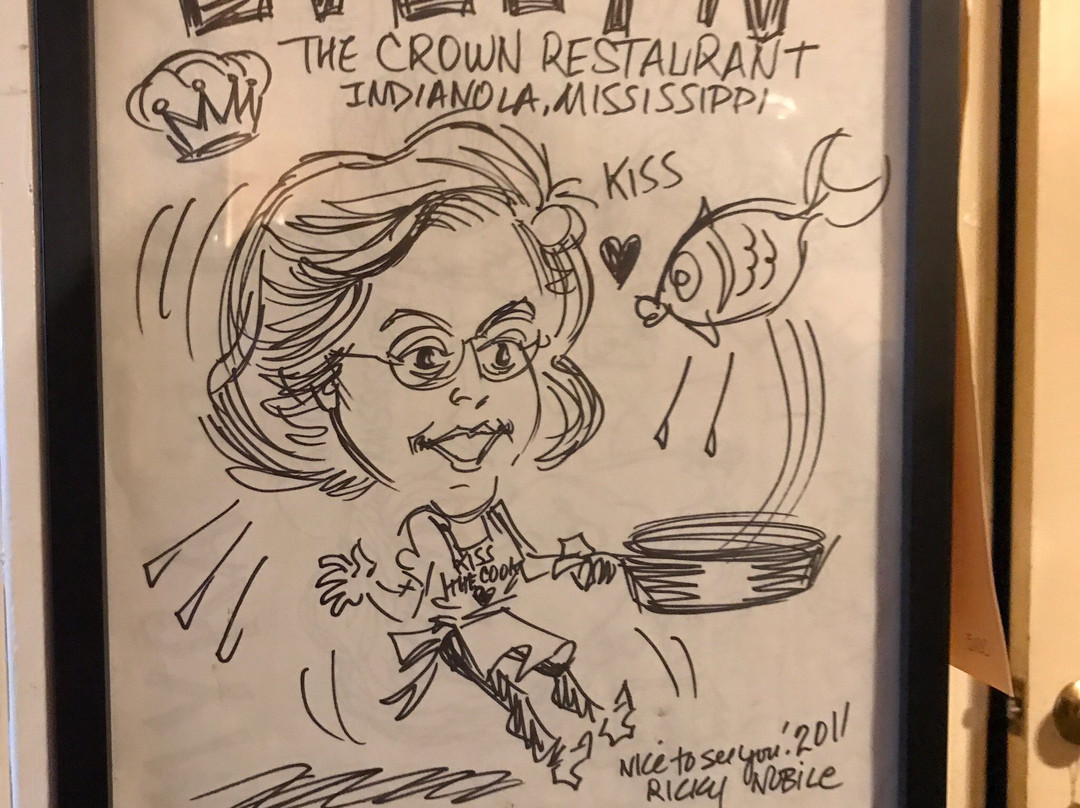 THE CROWN RESTAURANT
INDIANOLA, MISSISSIPPI
KISS
KISS
THE COOK
NICE to see you! 2011
RICKY NOBILE